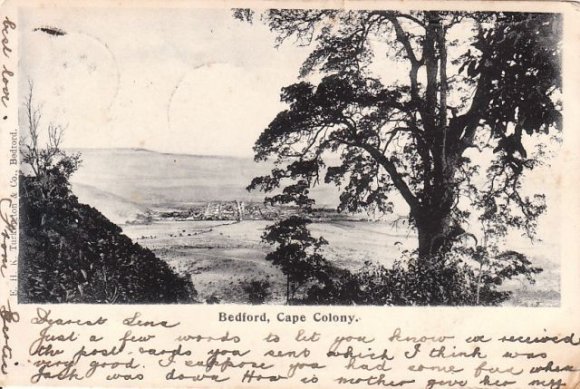 Bedford, Cape Colony.
Dearest Lena
Just a few words to let you know we received
the post-cards you sent which I think was
very good. I suppose you had some fun when
Jack was down How is mother give her my
best love.
from